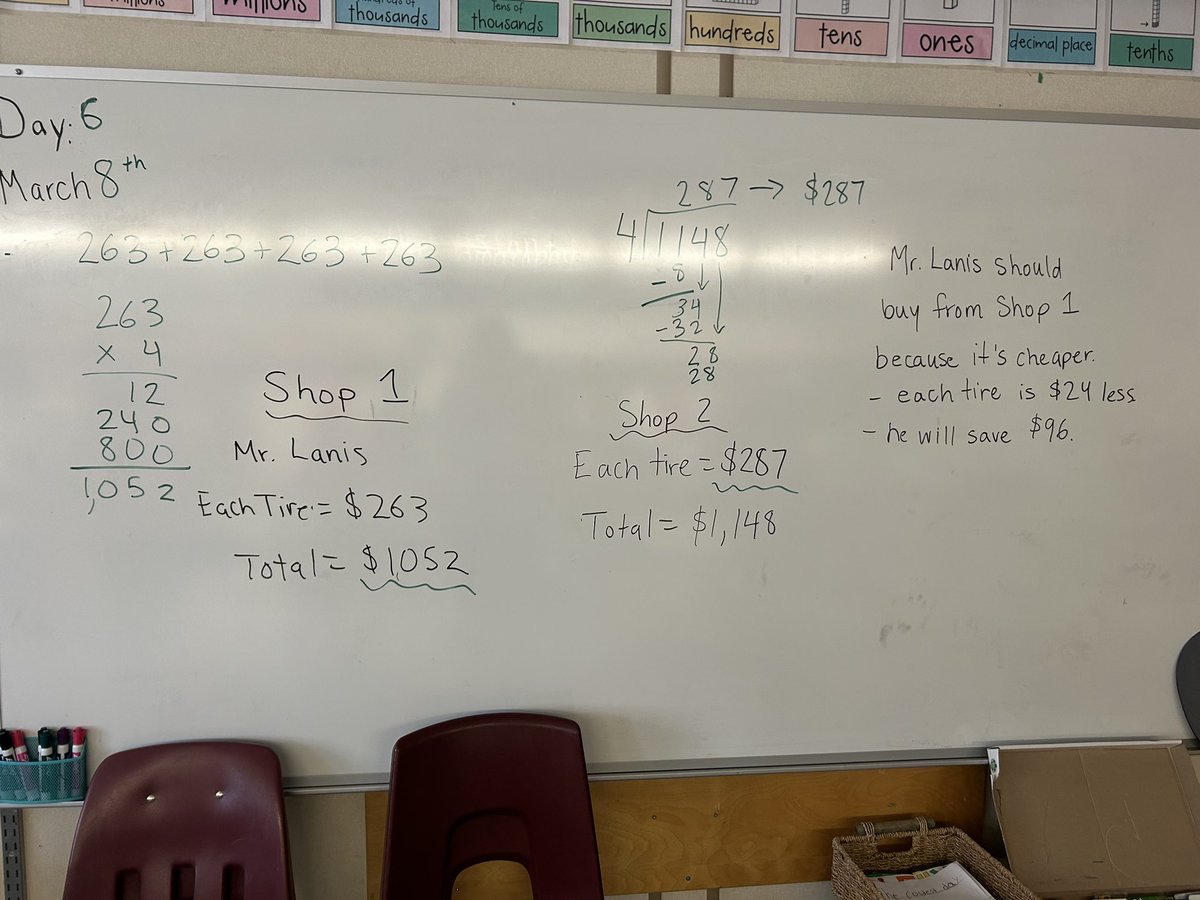 millions
thousands
tens of
thousands
thousands
hundreds
tens
ones
decimal place
tenths
Day: 6
March 8th
263 + 263 + 263 + 263
263
x 4
12
240
800
1,052
Shop 1
Mr. Lanis
Each Tire = $263
Total = $1,052
287 → $287
4 1148
- 8
34
- 32
28
28
Shop 2
Each tire = $287
Total = $1,148
Mr. Lanis should
buy from Shop 1
because it's cheaper.
- each tire is $24 less
- he will save $96.